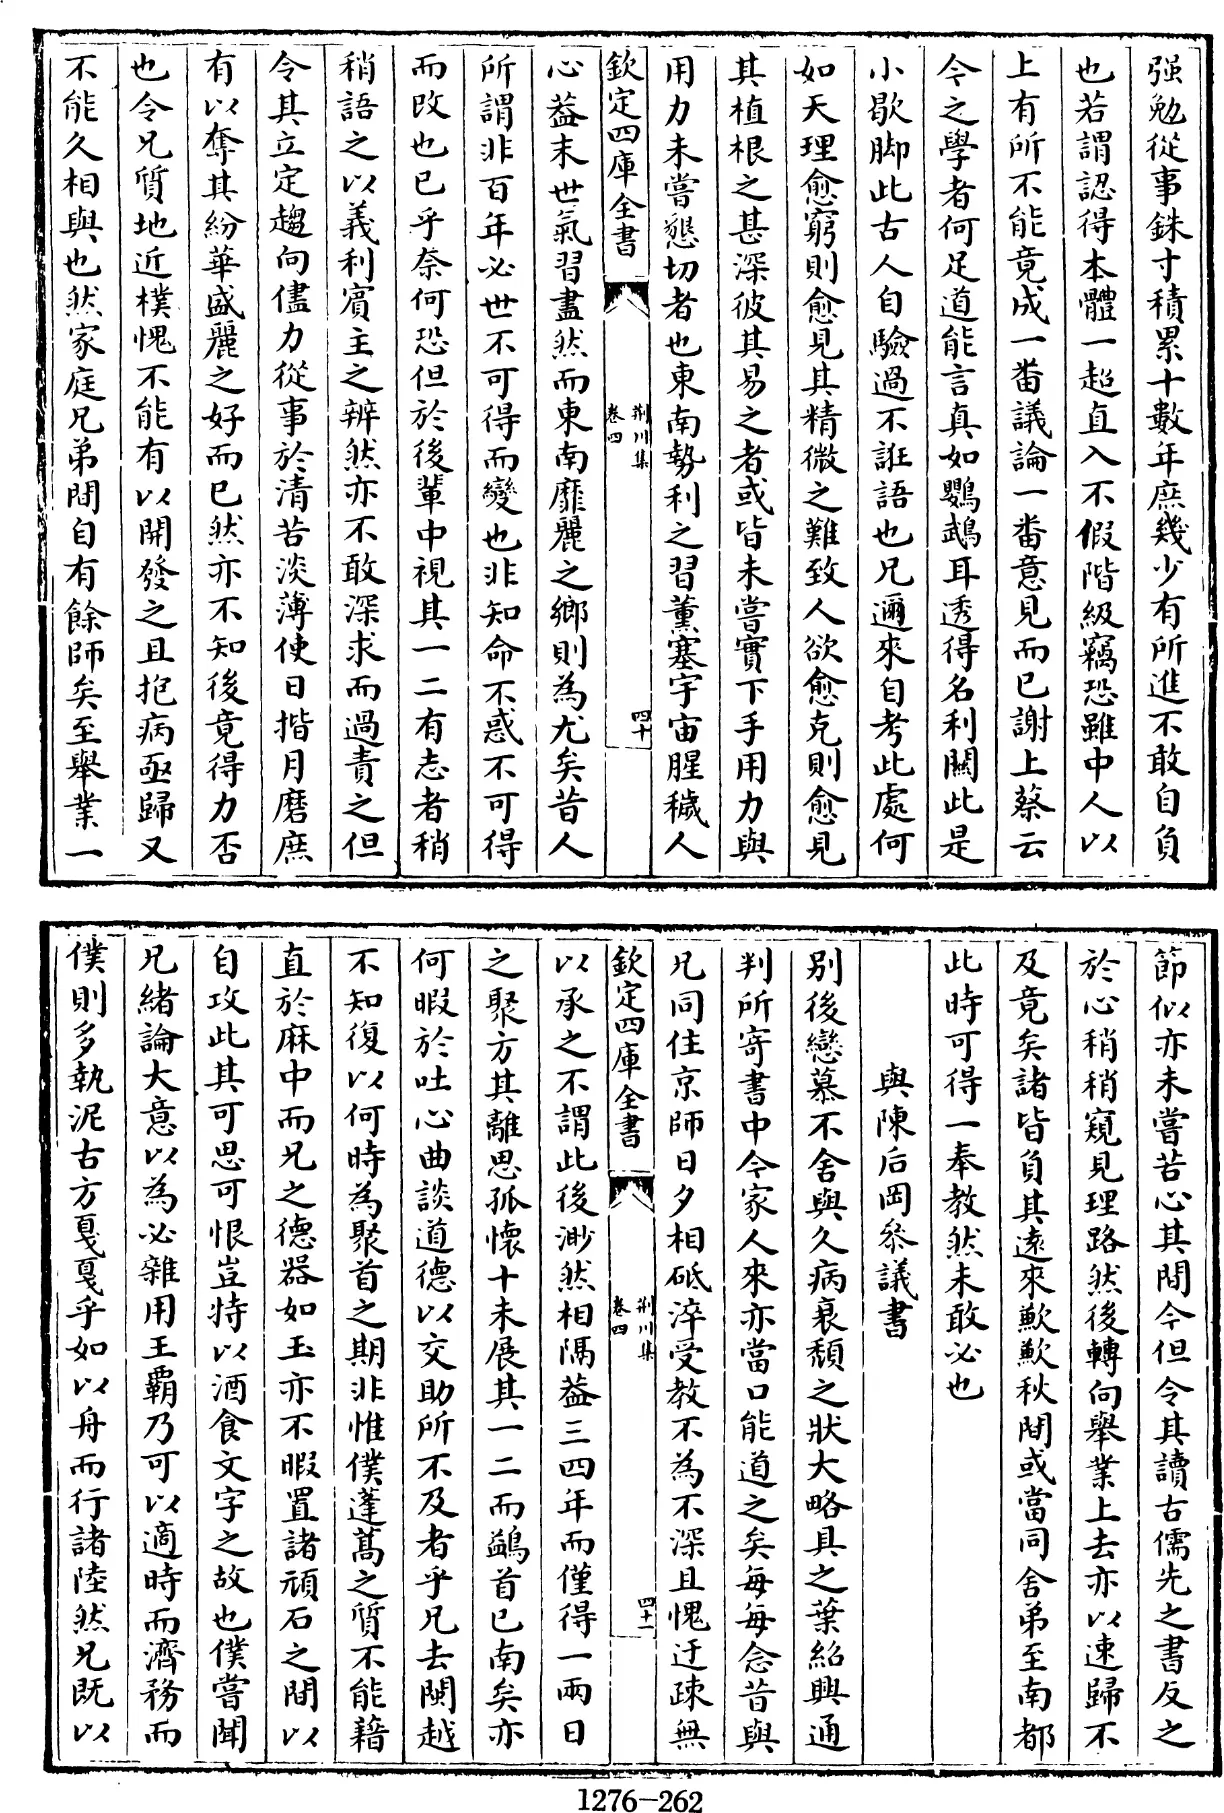 强勉從事銖寸積累十數年庶幾少有所進不敢自負
也若謂認得本體一超直入不假階級竊恐雖中人以
上有所不能竟成一番議論一番意見而已謝上蔡云
今之學者何足道能言真如鸚鵡耳透得名利關此是
小歇脚此古人自驗過不誑語也兄邇來自考此處何
如天理愈窮則愈見其精微之難致人欲愈克則愈見
其植根之甚深彼其易之者或皆未嘗實下手用力與
用力未嘗懇切者也東南勢利之習薰塞宇宙腥穢人
欽定四庫全書
荆川集
卷四
四十
心葢末世氣習盡然而東南靡麗之鄉則為尤矣昔人
所謂非百年必世不可得而變也非知命不惑不可得
而改也已乎奈何恐但於後輩中視其一二有志者稍
稍語之以義利賓主之辨然亦不敢深求而過責之但
令其立定趨向儘力從事於清苦淡薄使日揩月磨庶
有以奪其紛華盛麗之好而已然亦不知後竟得力否
也令兄質地近樸愧不能有以開發之且抱病亟歸又
不能久相與也然家庭兄弟間自有餘師矣至舉業一
節似亦未嘗苦心其間今但令其讀古儒先之書反之
於心稍稍窺見理路然後轉向舉業上去亦以速歸不
及竟矣諸皆負其遠來歉歉秋間或當同舍弟至南都
此時可得一奉教然未敢必也
與陳后岡叅議書
別後戀慕不舍與久病衰頹之狀大略具之葉紹興通
判所寄書中今家人來亦當口能道之矣每每念昔與
兄同住京師日夕相砥淬受教不為不深且愧迂疎無
欽定四庫全書
荆川集
卷四
四十一
以承之不謂此後渺然相隔葢三四年而僅得一兩日
之聚方其離思孤懷十未展其一二而鷁首已南矣亦
何暇於吐心曲談道德以交助所不及者乎兄去閩越
不知復以何時為聚首之期非惟僕蓬蒿之質不能藉
直於麻中而兄之德器如玉亦不暇置諸頑石之間以
自攻此其可思可恨豈特以酒食文字之故也僕嘗聞
兄緒論大意以為必雜用王覇乃可以適時而濟務而
僕則多執泥古方戛戛乎如以舟而行諸陸然兄既以
1276-262